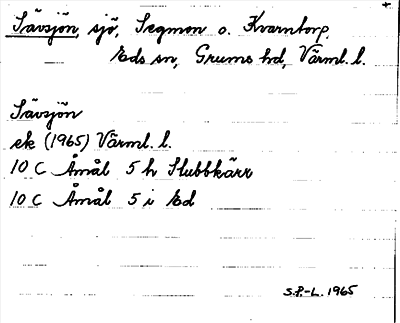 Sävsjön, sjö, Segmon o. Kvarntorp,
Eds sn, Grums hd, Värml. l.
Sävsjön
ek (1965) Värml. l.
10 C Åmål 5 h Slubbkärr
10 C Åmål 5 i Ed
S.P.-L. 1965